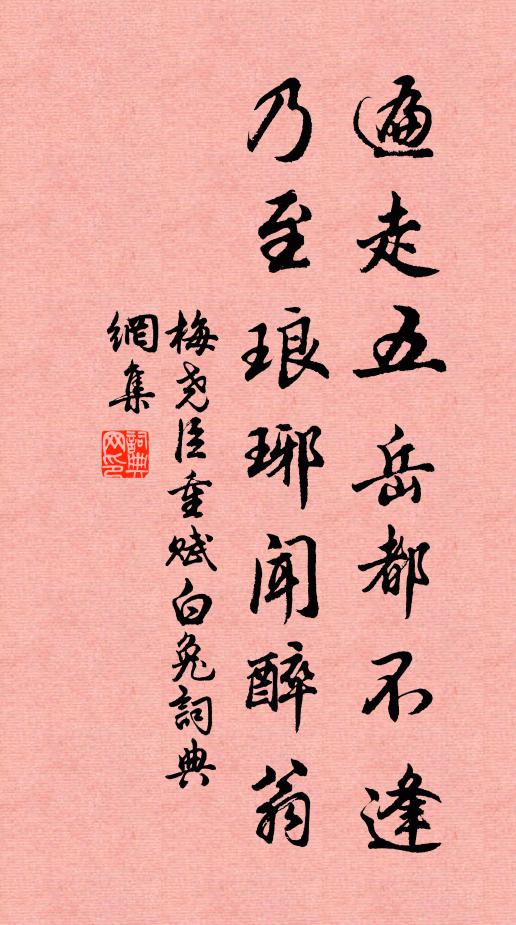 遍走五岳都不逢
乃至琅琊聞醉翁
梅尧臣重赋白兔詞典
網集
詞典網印